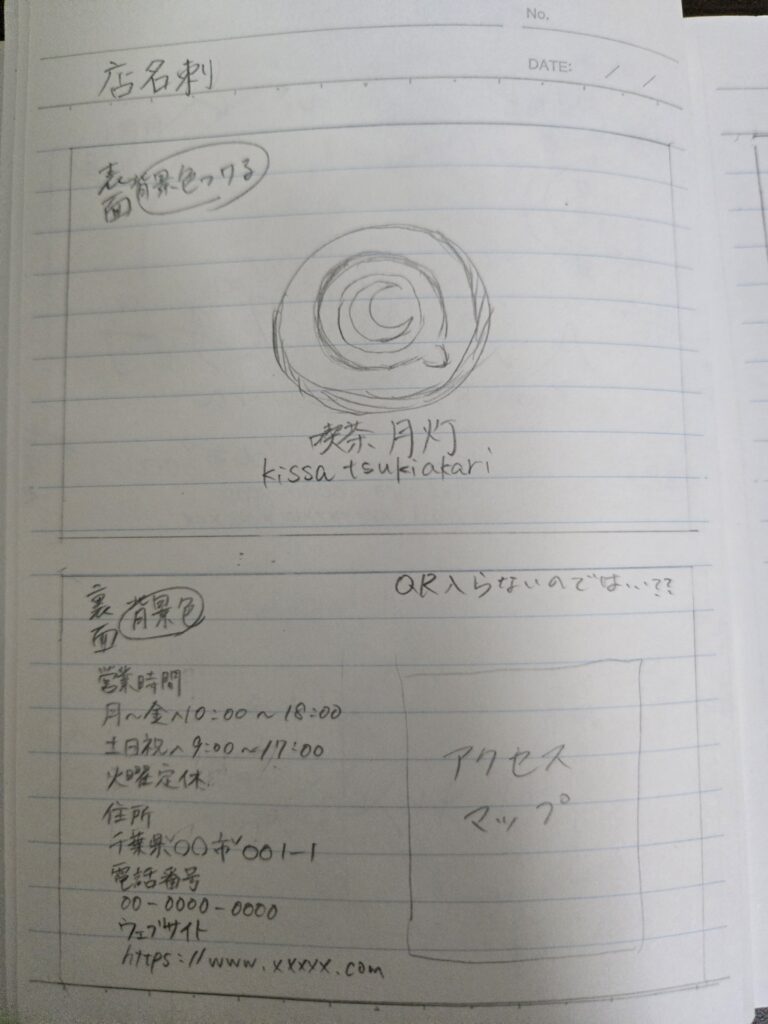 No.
DATE: / /
店名刺
表面 背景色つける
喫茶 月灯
kissa tsukiakari
裏面 背景色
QR入らないのでは…??
営業時間
月〜金へ10:00〜18:00
土日祝へ9:00〜17:00
火曜定休
住所
千葉県〇〇市〇〇1-1
電話番号
00-0000-0000
ウェブサイト
https://www.xxxxx.com
アクセス
マップ